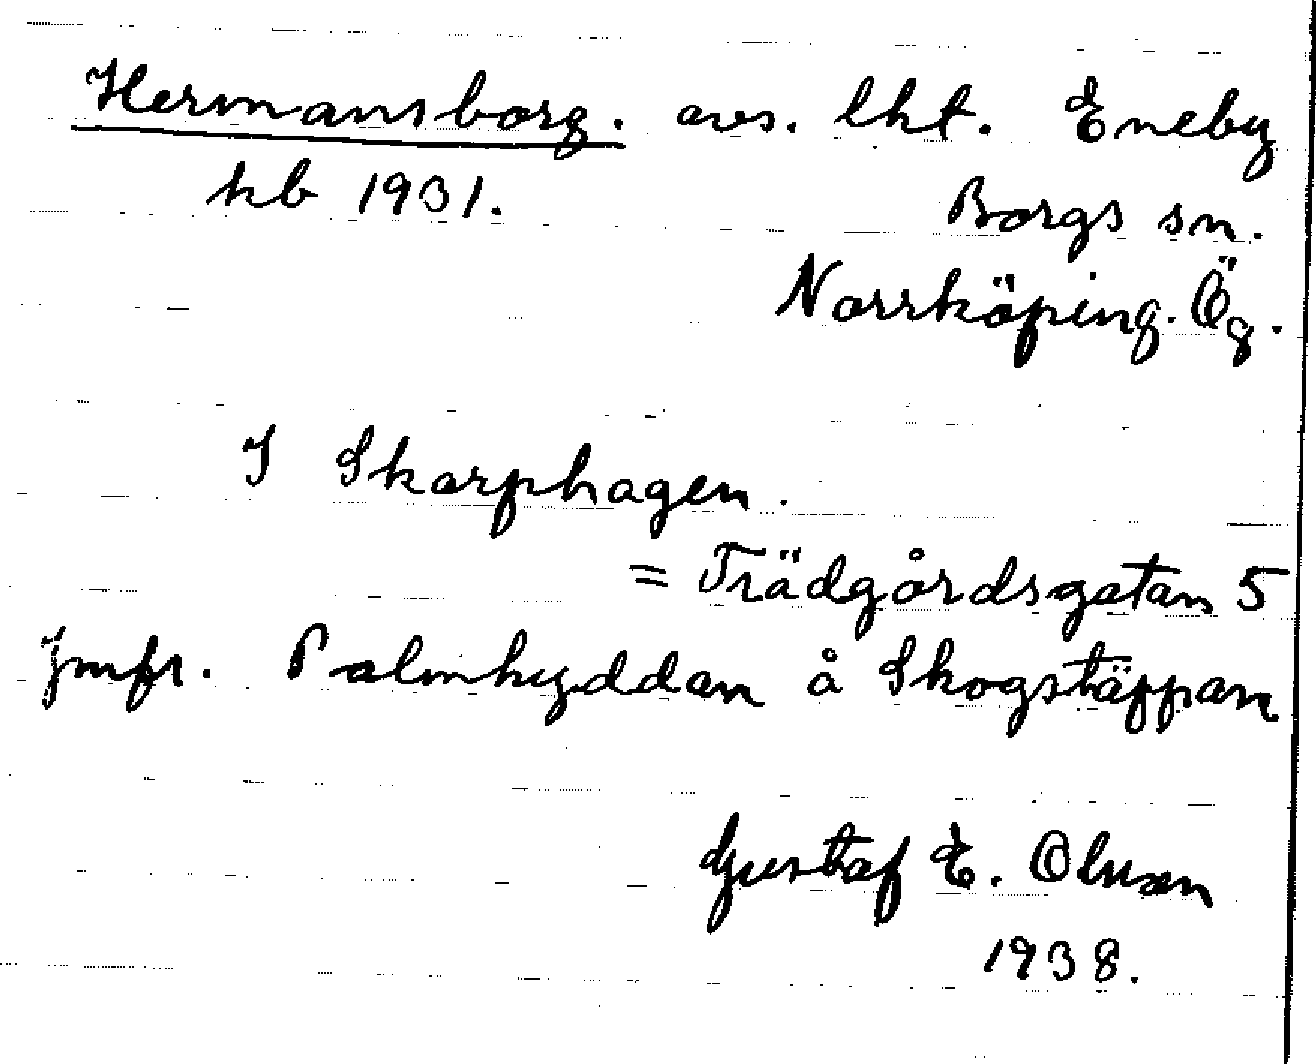 Hermansborg. avs. lht. Eneby
kb 1931. Borgs sn.
Norrköping. Ög.
I Skarphagen.
= Trädgårdsgatan 5
Jmfr. Palmhyddan å Skogstäppan
Gustaf E. Olsson
1938.